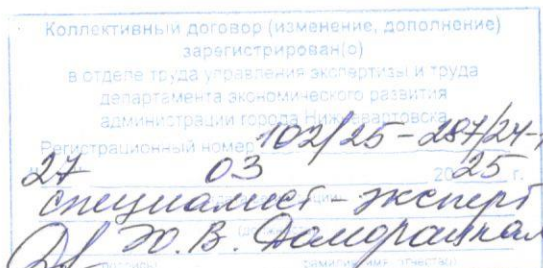 Коллективный договор (изменение, дополнение)
зарегистрирован(о)
в отделе труда управления экспертизы и труда
департамента экономического развития
администрации города Нижневартовска
Регистрационный номер 102/25-287/24-
27 03 2025 г.
специалист-эксперт
(должность)
Ю.В.
подпись фамилия, имя, отчество